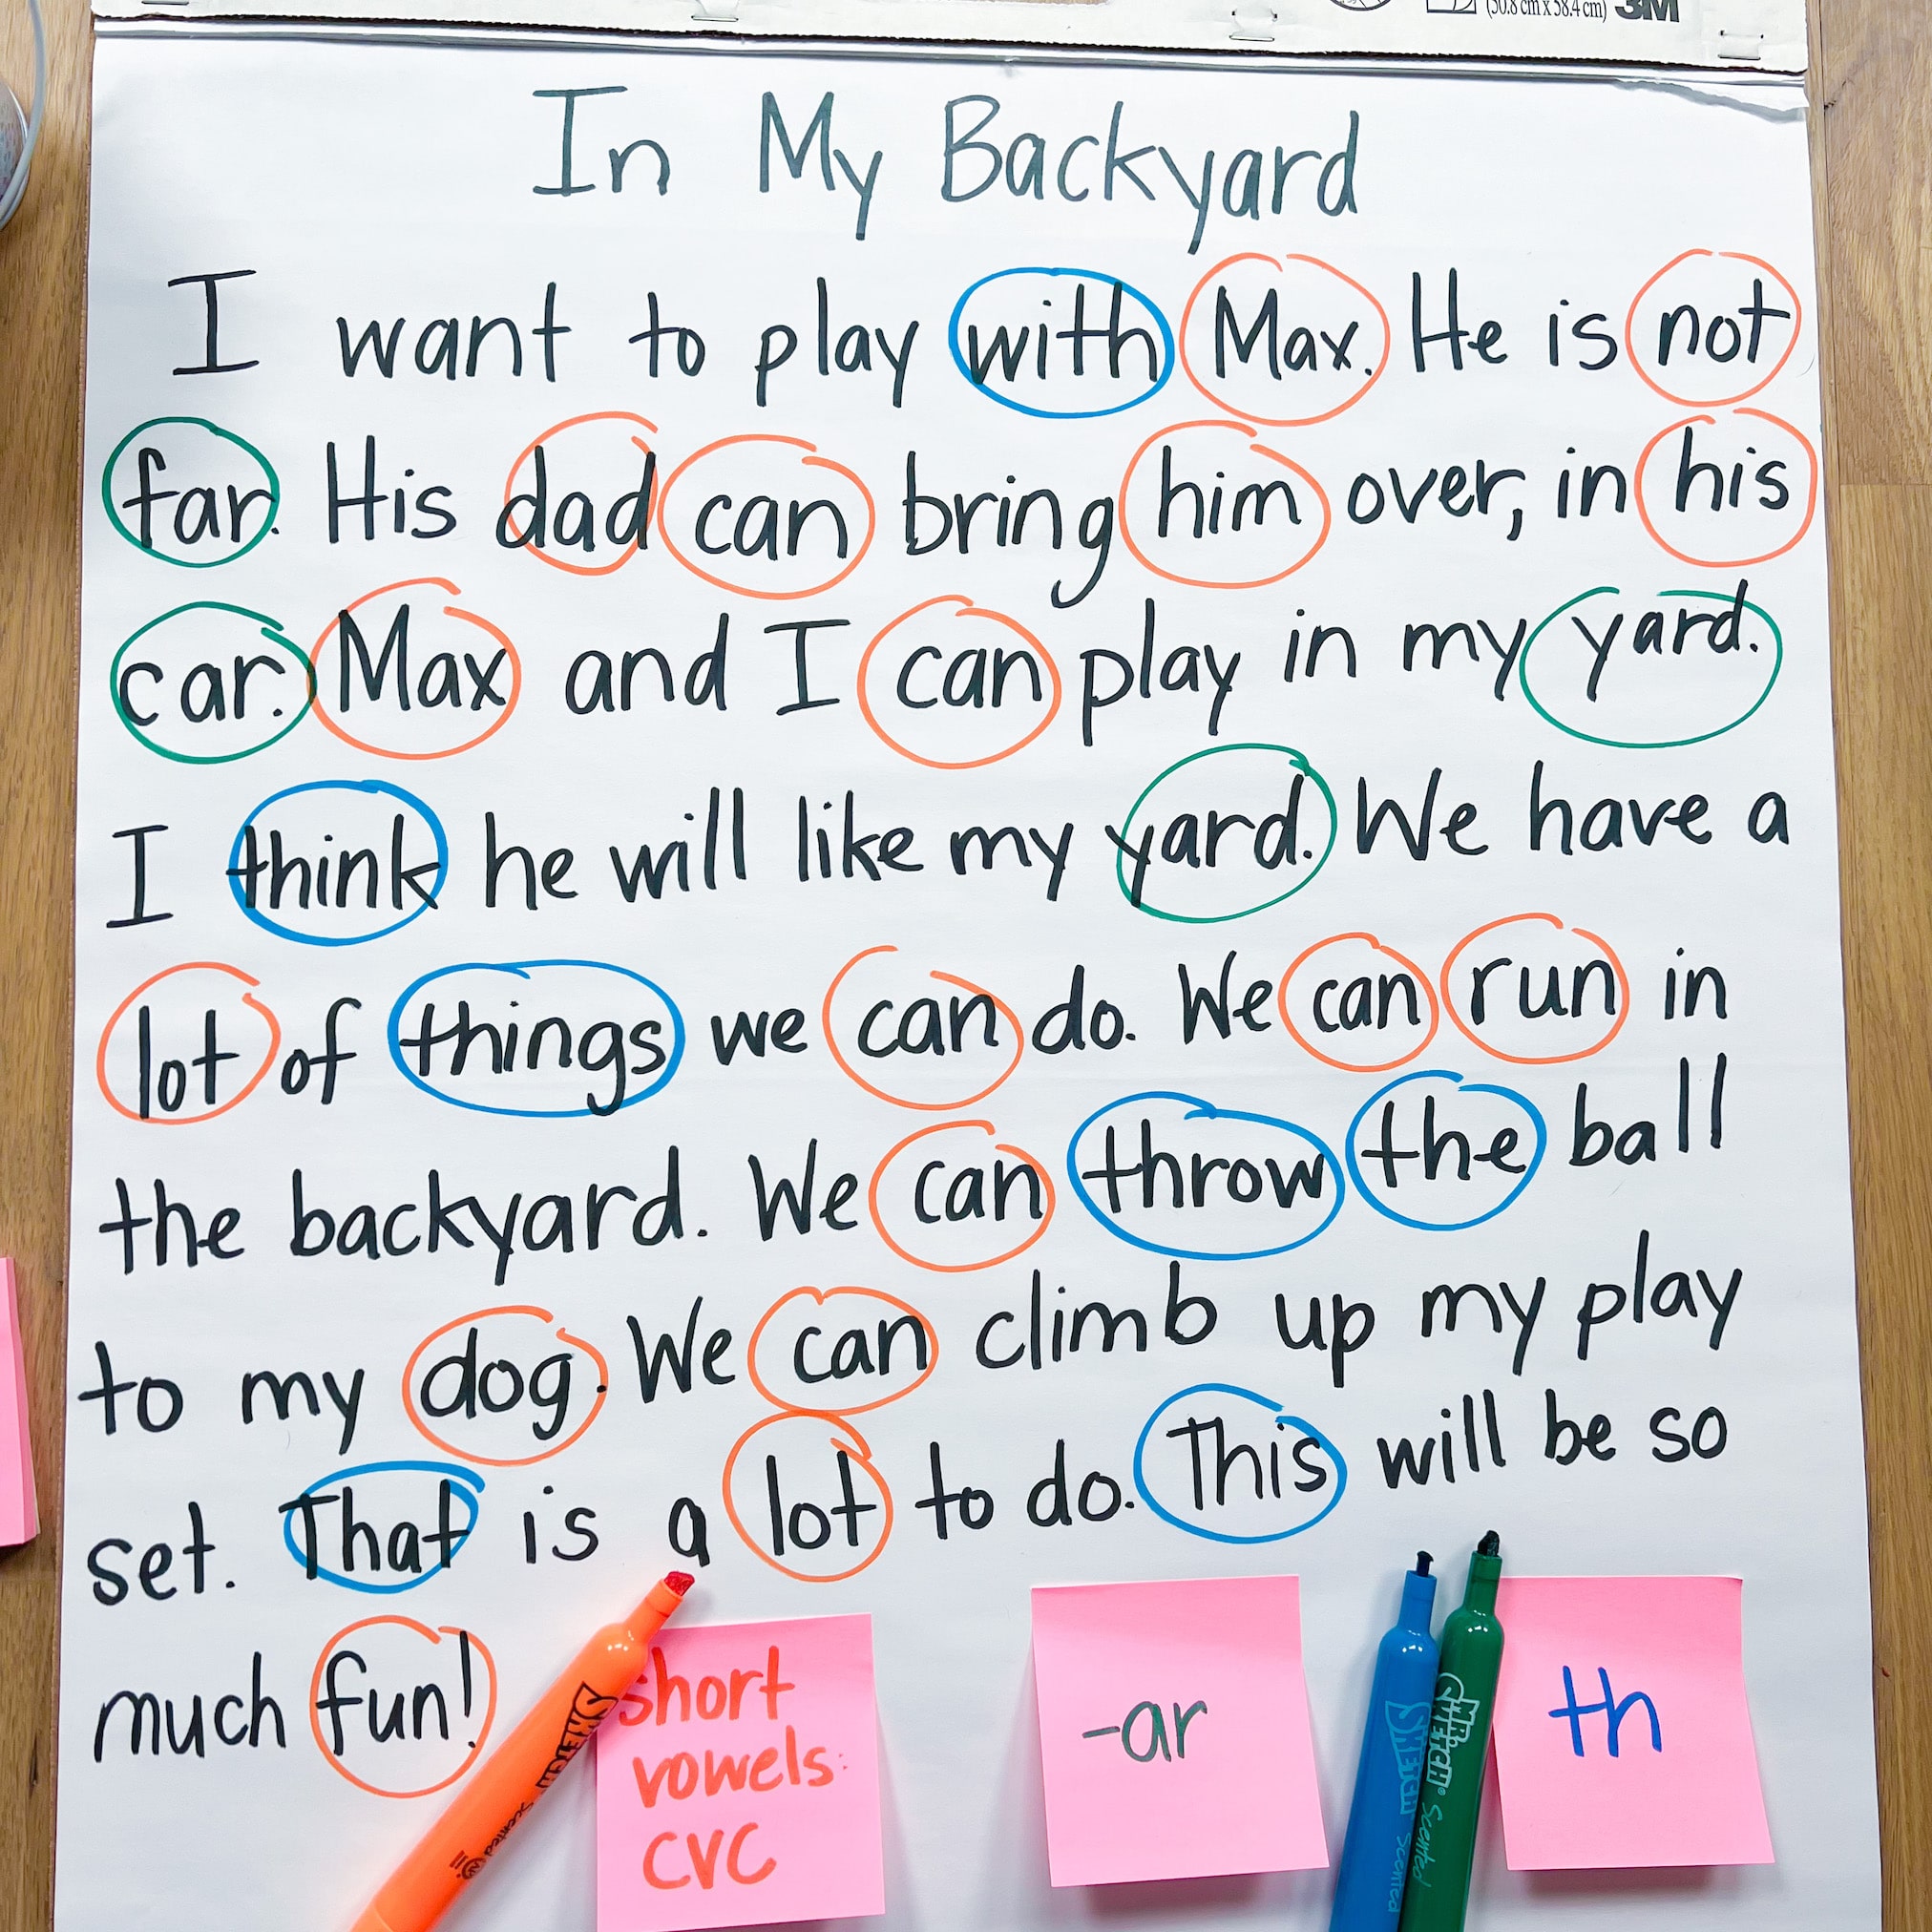 (50.8 cm x 58.4 cm) 3M
In My Backyard
I want to play with Max. He is not
far. His dad can bring him over, in his
car. Max and I can play in my yard.
I think he will like my yard. We have a
lot of things we can do. We can run in
the backyard. We can throw the ball
to my dog. We can climb up my play
set. That is a lot to do. This will be so
much fun!
short
vowels:
CVC
-ar
th
SKETCH Scented
MR. SKETCH® Scented